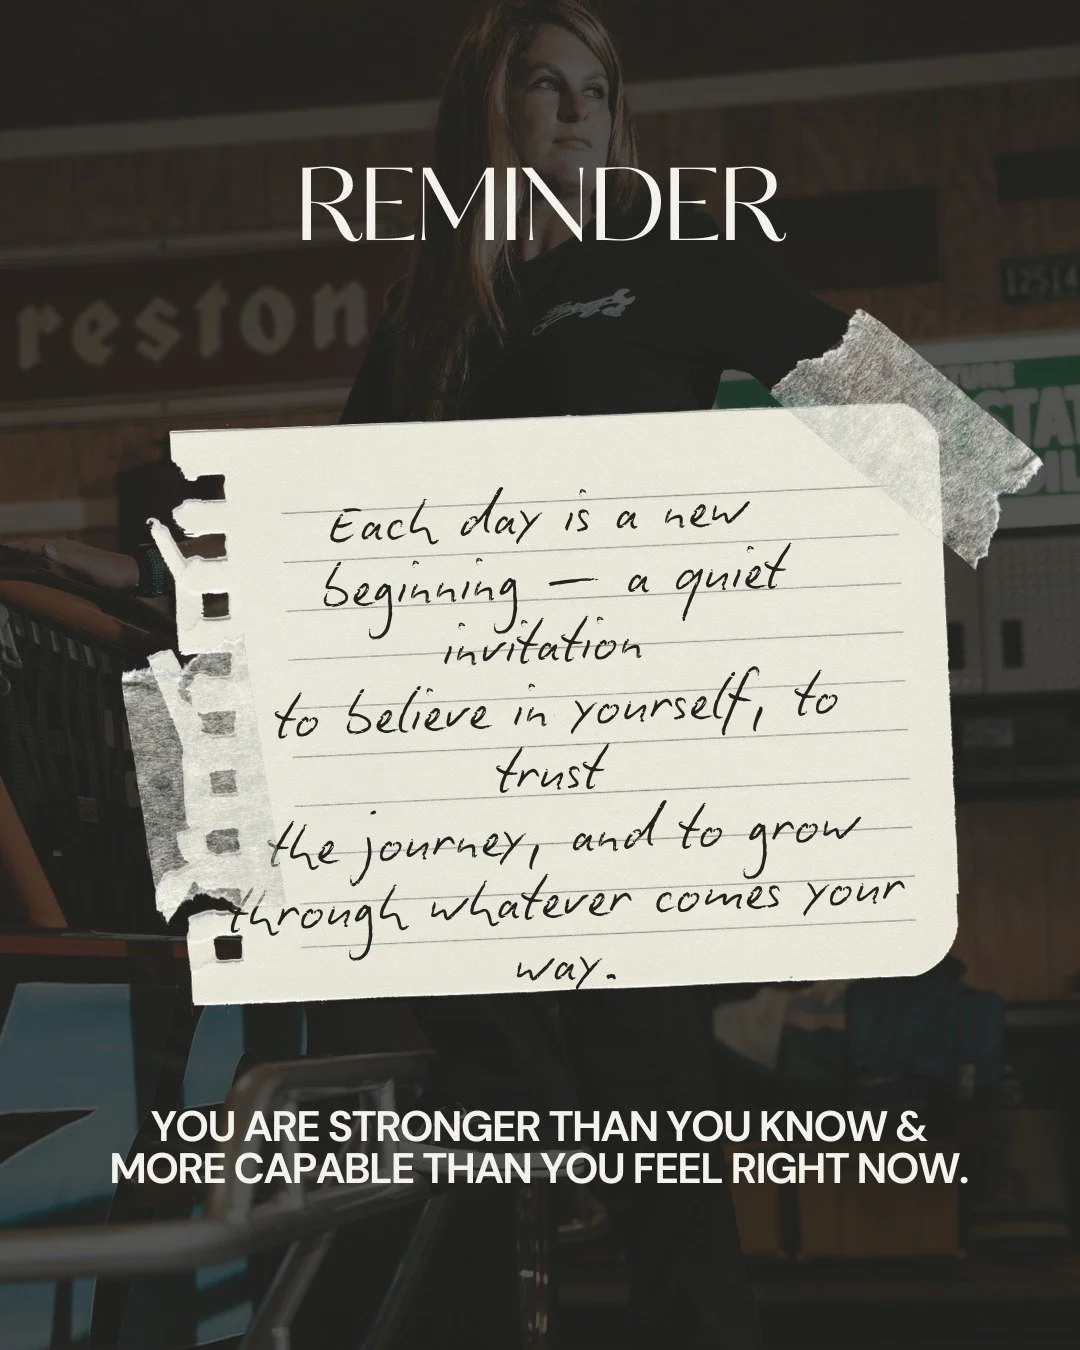 REMINDER
reston
Each day is a new
beginning — a quiet
invitation
to believe in yourself, to
trust
the journey, and to grow
through whatever comes your
way.
YOU ARE STRONGER THAN YOU KNOW &
MORE CAPABLE THAN YOU FEEL RIGHT NOW.